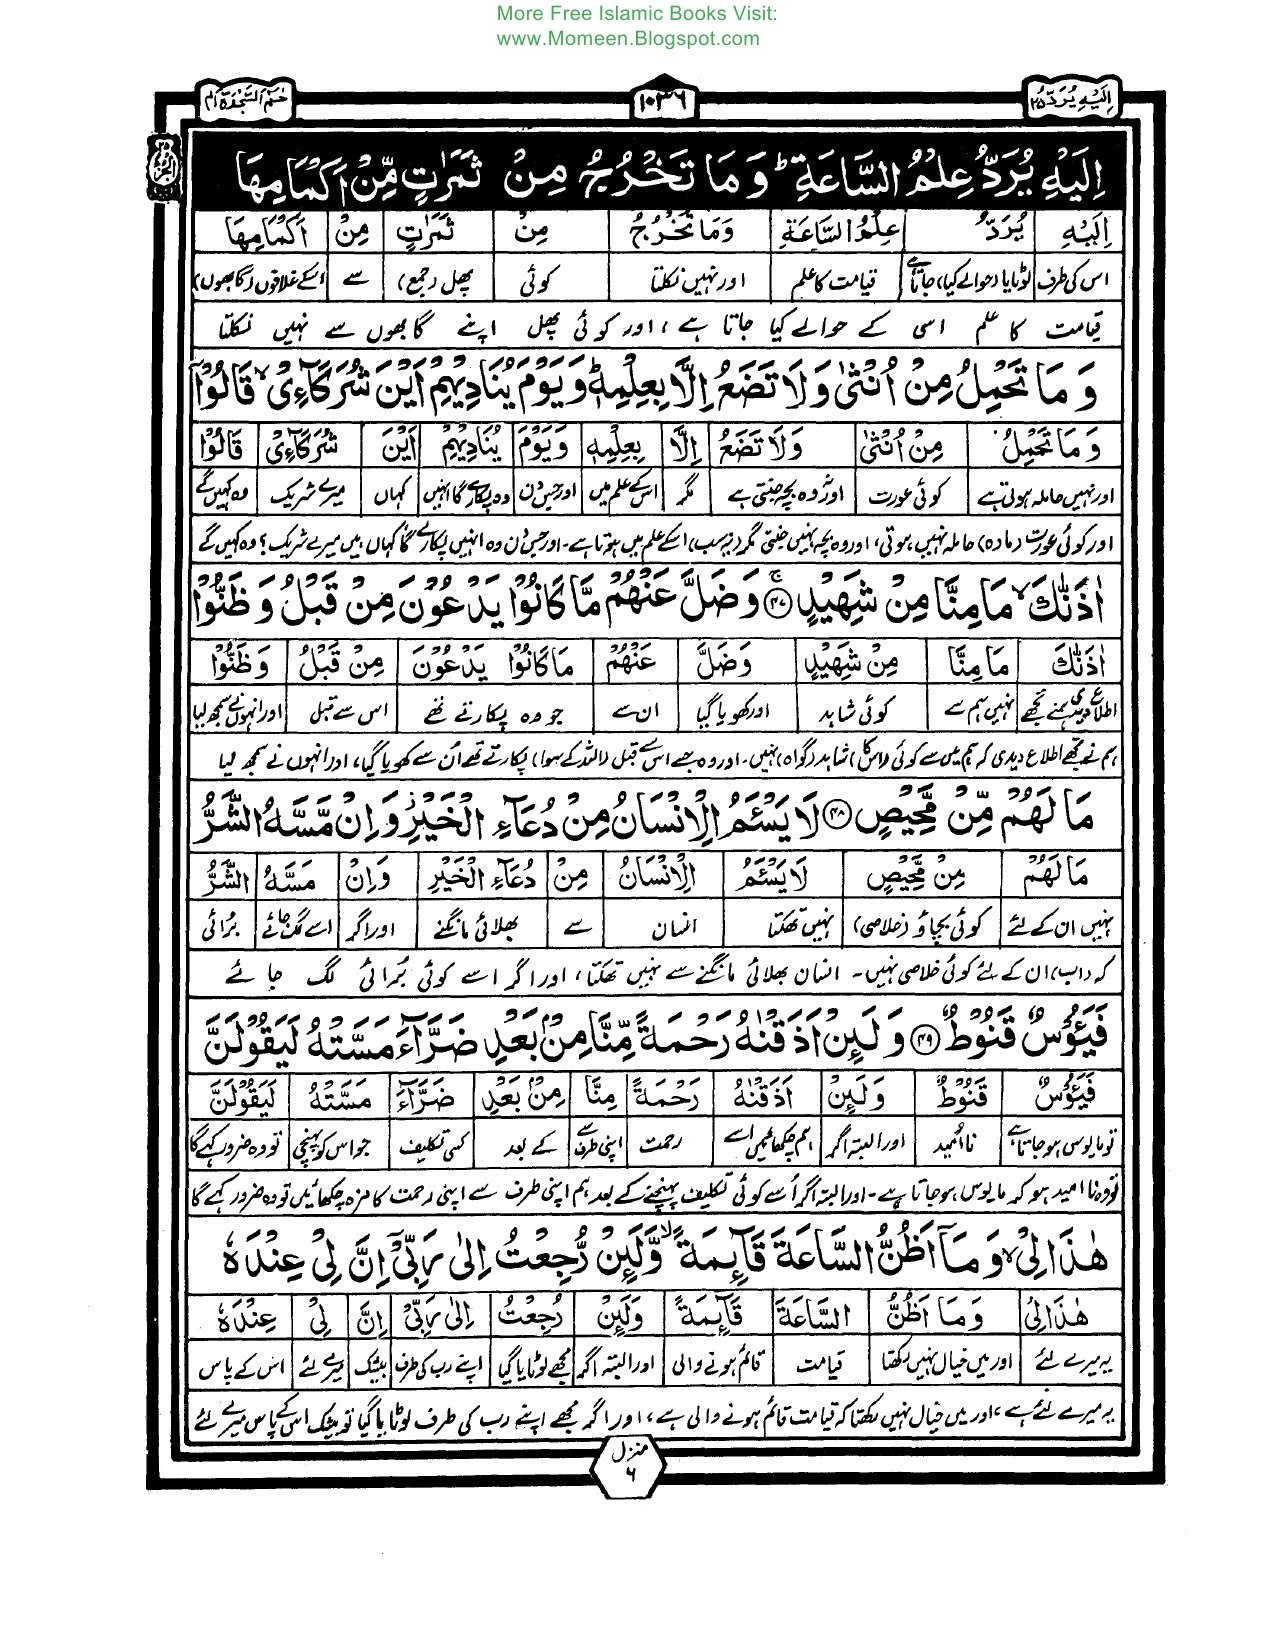 More Free Islamic Books Visit:
www.Momeen.Blogspot.com
اِلَيْهِ يُرَدُّ ۲۵ ۱۰۳۶ حٰمٓ السَّجْدَة ۴۱
اِلَيْهِ يُرَدُّ عِلْمُ السَّاعَةِ ؕ وَ مَا تَخْرُجُ مِنْ ثَمَرٰتٍ مِّنْ اَكْمَامِهَا
اِلَيْهِ يُرَدُّ عِلْمُ السَّاعَةِ وَمَا تَخْرُجُ مِنْ ثَمَرٰتٍ مِنْ اَكْمَامِهَا
اس کی طرف لوٹایا (حوالے کیا) جاتا ہے قیامت کا علم اور نہیں نکلتا کوئی پھل (جمع) سے اسکے غلافوں (گابھوں)
قیامت کا علم اسی کے حوالے کیا جاتا ہے، اور کوئی پھل اپنے گابھوں سے نہیں نکلتا
وَ مَا تَحْمِلُ مِنْ اُنْثٰى وَلَا تَضَعُ اِلَّا بِعِلْمِهٖ ؕ وَ يَوْمَ يُنَادِيْهِمْ اَيْنَ شُرَكَآءِىْ ۙ قَالُوْٓا
وَ مَا تَحْمِلُ مِنْ اُنْثٰى وَلَا تَضَعُ اِلَّا بِعِلْمِهٖ وَيَوْمَ يُنَادِيْهِمْ اَيْنَ شُرَكَآءِىْ قَالُوْٓا
اور نہیں حاملہ ہوتی ہے کوئی عورت اور نہ وہ بچہ جنتی ہے مگر اس کے علم میں اور جس دن وہ پکارے گا انہیں کہاں میرے شریک وہ کہیں گے
اور کوئی عورت (مادہ) حاملہ نہیں ہوتی، اور وہ بچہ نہیں جنتی مگر (یہ سب) اسکے علم میں ہوتا ہے۔ اور جس دن وہ انہیں پکارے گا کہاں ہیں میرے شریک؟ وہ کہیں گے
اٰذَنّٰكَ ۙ مَا مِنَّا مِنْ شَهِيْدٍ ۴۷ۚ وَ ضَلَّ عَنْهُمْ مَّا كَانُوْا يَدْعُوْنَ مِنْ قَبْلُ وَ ظَنُّوْا
اٰذَنّٰكَ مَا مِنَّا مِنْ شَهِيْدٍ وَضَلَّ عَنْهُمْ مَا كَانُوْا يَدْعُوْنَ مِنْ قَبْلُ وَ ظَنُّوْا
اطلاع دیدی ہمنے تجھے نہیں ہم سے کوئی شاہد اور کھویا گیا ان سے جو وہ پکارتے تھے اس سے قبل اور انہوں نے سمجھ لیا
ہم نے تجھے اطلاع دیدی کہ ہم میں سے کوئی (اس کا) شاہد (گواہ) نہیں۔ اور وہ جسے اس سے قبل (اللہ کے سوا) پکارتے تھے اُن سے کھویا گیا، اور انہوں نے سمجھ لیا
مَا لَهُمْ مِّنْ مَّحِيْصٍ ۴۸ لَا يَسْـَٔمُ الْاِنْسَانُ مِنْ دُعَآءِ الْخَيْرِ ۫ وَ اِنْ مَّسَّهُ الشَّرُّ
مَا لَهُمْ مِنْ مَّحِيْصٍ لَا يَسْـَٔمُ الْاِنْسَانُ مِنْ دُعَآءِ الْخَيْرِ وَاِنْ مَسَّهُ الشَّرُّ
نہیں ان کے لئے کوئی بچاؤ (خلاصی) نہیں تھکتا انسان سے بھلائی مانگنے اور اگر اسے لگ جائے برائی
کہ (اب) ان کے لئے کوئی خلاصی نہیں۔ انسان بھلائی مانگنے سے نہیں تھکتا، اور اگر اسے کوئی بُرائی لگ جائے
فَيَـُٔوْسٌ قَنُوْطٌ ۴۹ وَ لَئِنْ اَذَقْنٰهُ رَحْمَةً مِّنَّا مِنْۢ بَعْدِ ضَرَّآءَ مَسَّتْهُ لَيَقُوْلَنَّ
فَيَـُٔوْسٌ قَنُوْطٌ وَلَئِنْ اَذَقْنٰهُ رَحْمَةً مِنَّا مِنْۢ بَعْدِ ضَرَّآءَ مَسَّتْهُ لَيَقُوْلَنَّ
تو مایوس ہو جاتا ہے نااُمید اور البتہ اگر ہم چکھائیں اسے رحمت اپنی طرف سے کے بعد کسی تکلیف جو اس کو پہنچی تو وہ ضرور کہے گا
تو وہ نا امید ہو کر مایوس ہو جاتا ہے۔ اور البتہ اگر اُسے کوئی تکلیف پہنچنے کے بعد ہم اپنی طرف سے اپنی رحمت کا مزہ چکھائیں تو وہ ضرور کہے گا
هٰذَا لِىْ ۙ وَ مَآ اَظُنُّ السَّاعَةَ قَآئِمَةً ۙ وَّلَئِنْ رُّجِعْتُ اِلٰى رَبِّىْٓ اِنَّ لِىْ عِنْدَهٗ
هٰذَا لِىْ وَ مَآ اَظُنُّ السَّاعَةَ قَآئِمَةً وَلَئِنْ رُجِعْتُ اِلٰى رَبِّىْٓ اِنَّ لِىْ عِنْدَهٗ
یہ میرے لئے اور میں خیال نہیں رکھتا قیامت قائم ہونے والی اور البتہ اگر مجھے لوٹایا گیا اپنے رب کی طرف بیشک میرے لئے اس کے پاس
یہ میرے لئے ہے، اور میں خیال نہیں رکھتا کہ قیامت قائم ہونے والی ہے، اور اگر مجھے اپنے رب کی طرف لوٹایا گیا تو بیشک اس کے پاس میرے لئے
منزل
۶